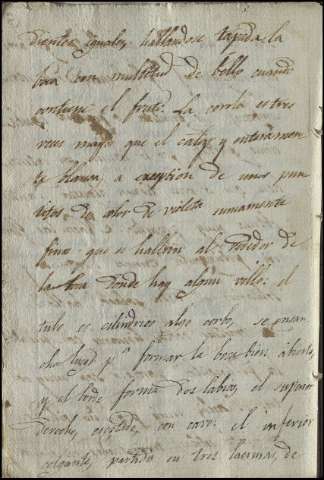 dientes iguales, hallandose tapada la
boca con multitud de bello cuando
contiene el fruto. La corola es tres
veces mayor que el caliz y enteramen
te blanca, a excepcion de unos pun
titos de color de violeta sumamente
finos que se hallan al rededor de
la boca donde hay algun vello: el
tubo es cilindrico algo corto, se ensan
cha luego pª formar la boca bien abierta,
y el borde forma dos labios, el superior
derecho, escotado, con caro el inferior
colgante, partido en tres lacinias, de